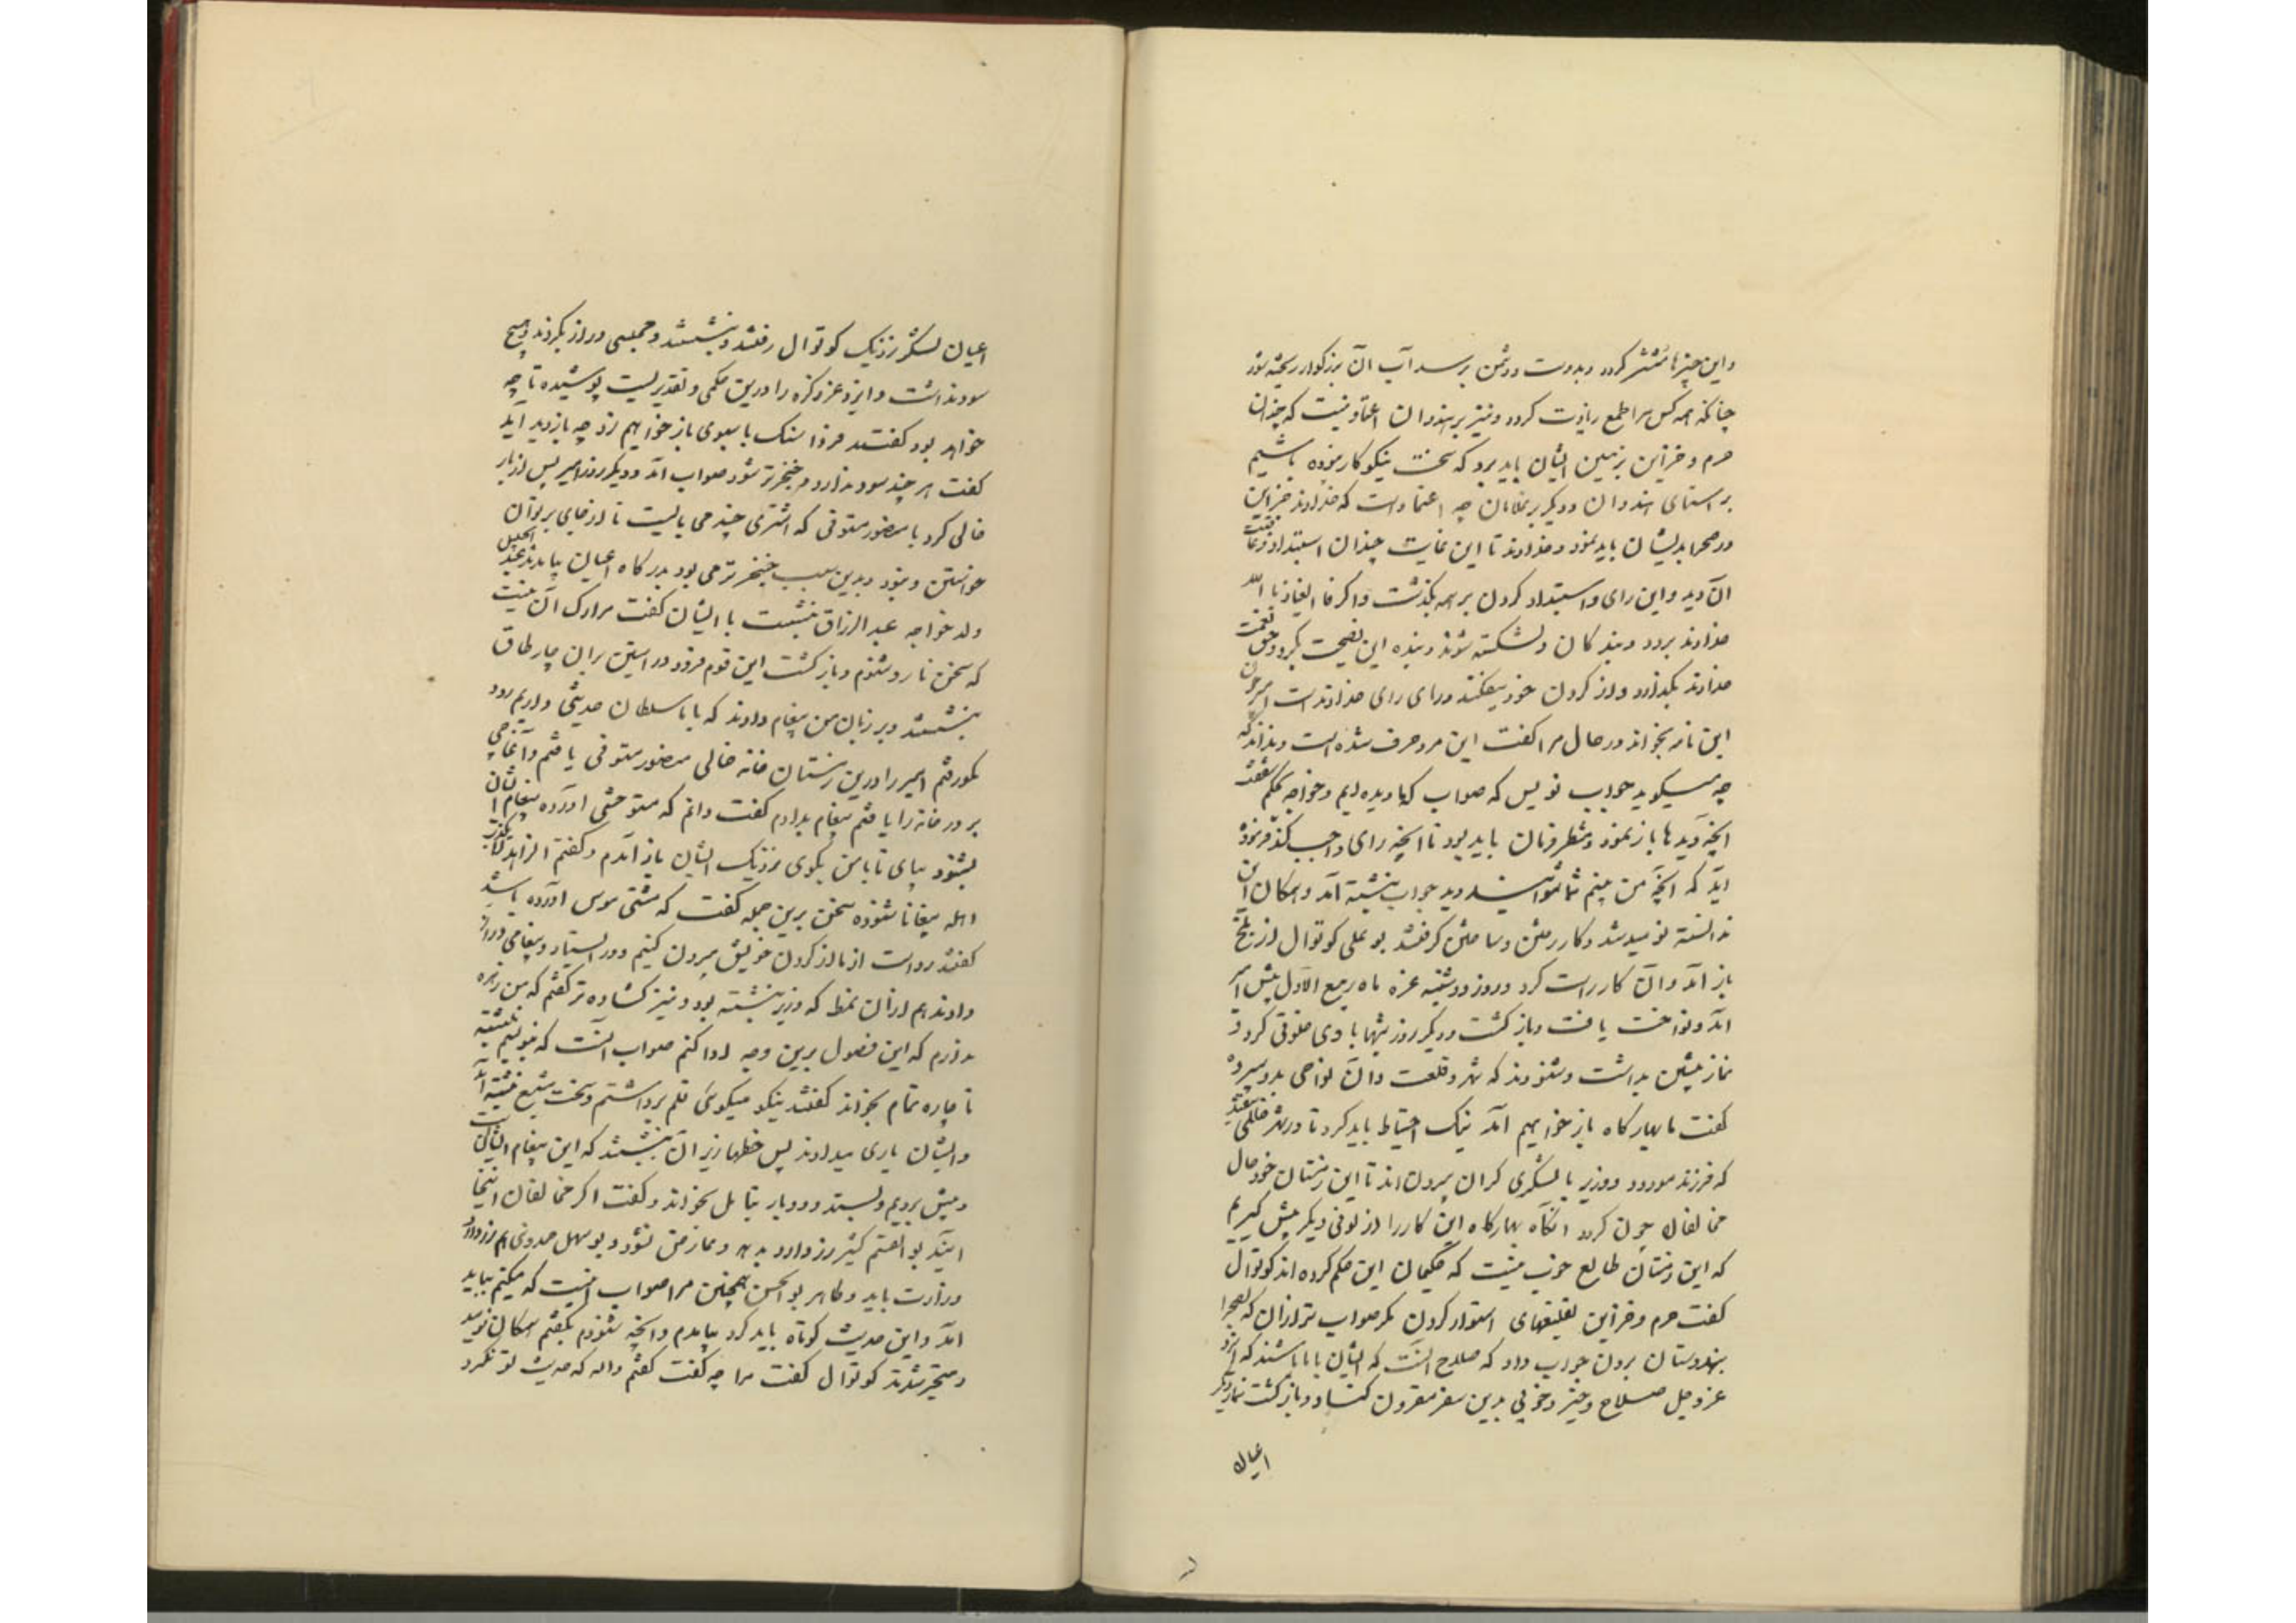 واین چیزها منتشر کردد و بدوست و دشمن برسد آب آن بزرکوار ریخته شود
چنانکه همه کس را طمع زیادت کردد و نیز بر هندوان اعتماد نیست که چندان
حرم و خزاین بزمین ایشان باید برد که سخت نیکوکار نبوده باشیم
براستای هندوان و دیکر بر غلامان چه اعتماد است که خداوند خزاین
در صحرا بدیشان باید نمود و خداوند تا این غایت چندان استبداد کرد
آن دید و این رای و استبداد کردن بر همه بکذشت و اکر فالعیاذ بالله
خداوند برود و بندکان دلشکسته شوند و بنده این نصیحت بکرد و حق نعمت
خداوند بکذارد و از کردن خود بیفکند و رای رای خداوند است امیر چون
این نامه بخواند در حال مرا کفت این مرد خرف شده است و نداند که
چه میکوید جواب نویس که صواب که ما دیده ایم و خواجه بحکم شفقت
انچه دید ما باز نمود و منتظر فرمان باید بود تا آنچه رای واجب کند فرموده
اید که آنچه من بینم شما نتوانید دید جواب نبشته آمد و همکان این
ندانسته نومید شد و کار رفتن و ساختن کرفتند بو علی کوتوال از بلخ
باز آمد و آن کار راست کرد و روز دوشنبه غره ماه ربیع الاول پیش امیر
آمد و نواخت یافت و باز کشت و دیکر روز تنها با وی خلوتی کرد و
نماز پیشین بداشت و شنودند که شهر و قلعت و آن نواحی بدو سپرد
کفت ما بهارکاه باز خواهیم آمد نیک احتیاط باید کرد تا در شهر خللی نیفتد
که فرزند مودود و وزیر با لشکری کران بیرون اند تا این زمستان خود حال
مخالفان چون کردد آنکاه بهارکاه این کار را از لونی دیکر پیش کیریم
که این زمستان طالع خوب نیست که حکیمان این حکم کرده اند کوتوال
کفت حرم و خزاین بقلعتهای استوار کردن مکر صواب تر از ان که بصحرا
بهندوستان بردن جواب داد که صلاح آنست که ایشان با ما باشند که ایزد
عز و جل صلاح و خیر و خوبی بدین سفر مقرون کناد و باز کشت نماز دیکر
اعیان
اعیان لشکر نزدیک کوتوال رفتند و بنشستند و مجلسی دراز بکردند و هیچ
سود نداشت و ایزد عز ذکره را درین حکمی و تقدیریست پوشیده تا چه
خواهد بود کفتند فردا سنک با سبوی باز خواهیم زد چه باز دید آید
کفت هر چند سود ندارد و ضجرتر شود صواب آمد و دیکر روز امیر پس از بار
خالی کرد با منصور مستوفی که اشتری چند می بایست تا از جای برتوان
خواستن و نبود و بدین سبب ضجرتر می بود بدرکاه اعیان بیامدند عبد الجلیل
ولد خواجه عبد الرزاق بنشست با ایشان کفت مرا برک آن نیست
که سخن نا رو شنوم و باز کشت این قوم فرود در آهنین بران چار طاق
بنشستند و بر زبان من پیغام دادند که با سلطان حدیثی داریم زود
نکو رفتم امیر را درین زمستان خانه خالی منصور مستوفی یافتم و آغاجی
بر در خانه را یافتم پیغام بدادم کفت دانم که متوحشی آورده پیغام ایشان
بشنود بیای تا با من بکوی نزدیک ایشان باز آمدم و کفتم الراید لا یکذب
اهله پیغام ناشنوده سخن برین جمله کفت که مشتی هوس آورده باشند
کفتند رواست اما از کردن خویش بیرون کنیم و در ایستاد و پیغامی دراز
دادند هم ازان نمط که وزیر نبشته بود و نیز کشاده تر کفتم که من زهره
ندارم که این فصول برین وجه ادا کنم صواب آنست که بنویسم نبشته
ناچاره تمام بخواند کفتند نیکو میکوئی قلم برداشتم و سخت مشبع نبشته آمد
و ایشان یاری میدادند پس خطها زیر آن نبشتند که این پیغام ایشانست
و پیش بردیم و بستد و دو بار بتامل بخواند و کفت اکر مخالفان اینجا
آیند بو القسم کثیر زر دارد بدهد و عارض شود و بو سهل حمدونی هم زر دارد
وزارت یابد و طاهر بو الحسن همچنین مرا صواب اینست که میکنم بباید
آمد و این حدیث کوتاه باید کرد بیامدم و آنچه شنودم بکفتم همکان نومید
و متحیر شدند کوتوال کفت مرا چه کفت کفتم والله که حدیث تو نکرد